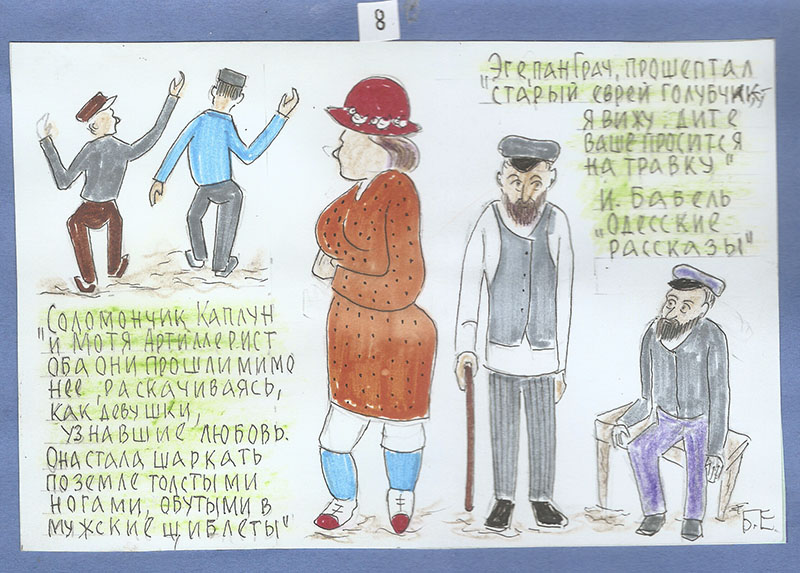 8
"Эге, пан Грач, прошептал
старый еврей Голубчик
я вижу дите
ваше просится
на травку"
И. Бабель
"Одесские
рассказы"
"Соломончик Каплун
и Мотя Артиллерист
оба они прошли мимо
нее, раскачиваясь,
как девушки,
узнавшие любовь.
Она стала шаркать
по земле толстыми
ногами, обутыми в
мужские щиблеты"
Б.Е.